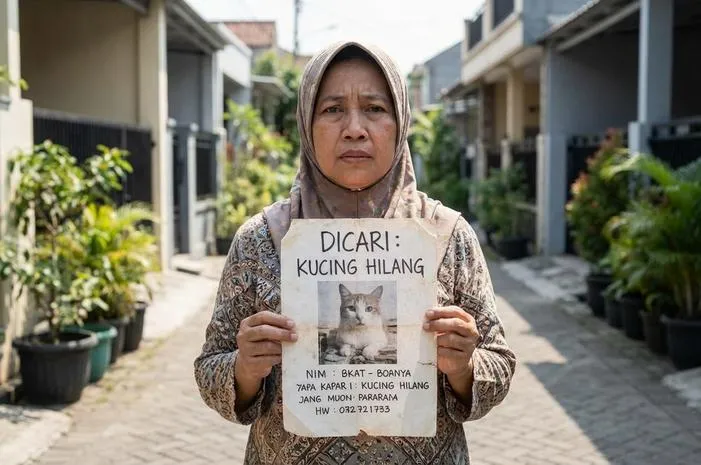 DICARI :
KUCING HILANG
NIM : BKAT - BOANYA
7APA KAPAR I : KUCING HILANG
JANG MUON· PARARAM
HW : 032721733